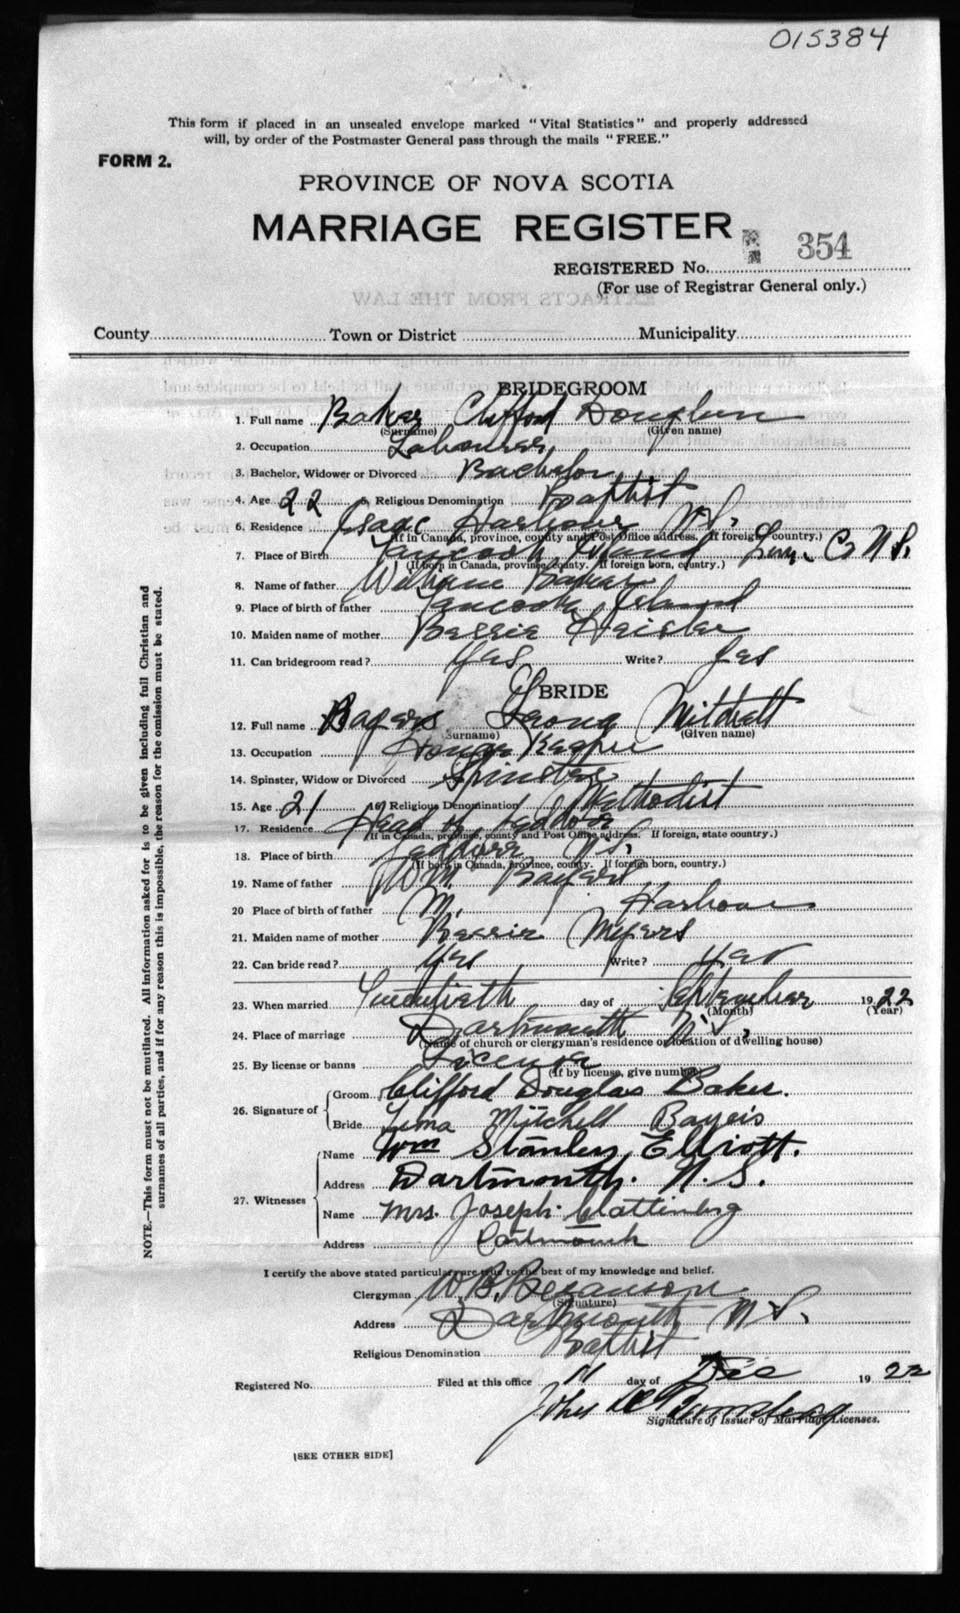 015384
This form if placed in an unsealed envelope marked "Vital Statistics" and properly addressed
will, by order of the Postmaster General pass through the mails "FREE."
FORM 2.
PROVINCE OF NOVA SCOTIA
MARRIAGE REGISTER
354
REGISTERED No.
(For use of Registrar General only.)
EXTRACTS FROM THE LAW
County Town or District Municipality
BRIDEGROOM
1. Full name Baker Clifford Douglas
(Surname) (Given name)
2. Occupation Labourer
3. Bachelor, Widower or Divorced Bachelor
4. Age 22 5. Religious Denomination Baptist
6. Residence Isaac Harbour N.S.
(If in Canada, province, county and Post Office address. If foreign country.)
7. Place of Birth Tancook Island Lun. Co N.S.
(If born in Canada, province, county. If foreign born, country.)
8. Name of father Baker
9. Place of birth of father Tancook Island
10. Maiden name of mother Bessie Heisler
11. Can bridegroom read? Yes Write? Yes
BRIDE
12. Full name Bayers Leona Mitchell
(Surname) (Given name)
13. Occupation House Keeper
14. Spinster, Widow or Divorced Spinster
15. Age 21 16 Religious Denomination Methodist
17. Residence Head of Jeddore
(If in Canada, province, county and Post Office address. If foreign, state country.)
18. Place of birth Jeddore N.S.
(If born in Canada, province, county. If foreign born, country.)
19. Name of father Wm. Bayers
20 Place of birth of father M. Harbour
21. Maiden name of mother Bessie Myers
22. Can bride read? Yes Write? Yes
23. When married Twentieth day of September 1922
(Month) (Year)
24. Place of marriage Dartmouth N.S.
(Name of church or clergyman's residence or location of dwelling house)
25. By license or banns License
(If by license, give number)
26. Signature of Groom Clifford Douglas Baker.
Bride Mitchell Bayers
27. Witnesses Name Wm Stanley Elliott.
Address Dartmouth. N.S.
Name Mrs. Joseph Slattenbrg
Address Dartmouth
I certify the above stated particulars are true to the best of my knowledge and belief.
Clergyman W. B. Bezanson
(Signature)
Address Dartmouth N.S.
Religious Denomination Baptist
Registered No. Filed at this office 11 day of Dec 1922
John
Signature of Issuer of Marriage Licenses.
[SEE OTHER SIDE]
NOTE.—This form must not be mutilated. All information asked for is to be given including full Christian and
surnames of all parties, and if for any reason this is impossible, the reason for the omission must be stated.